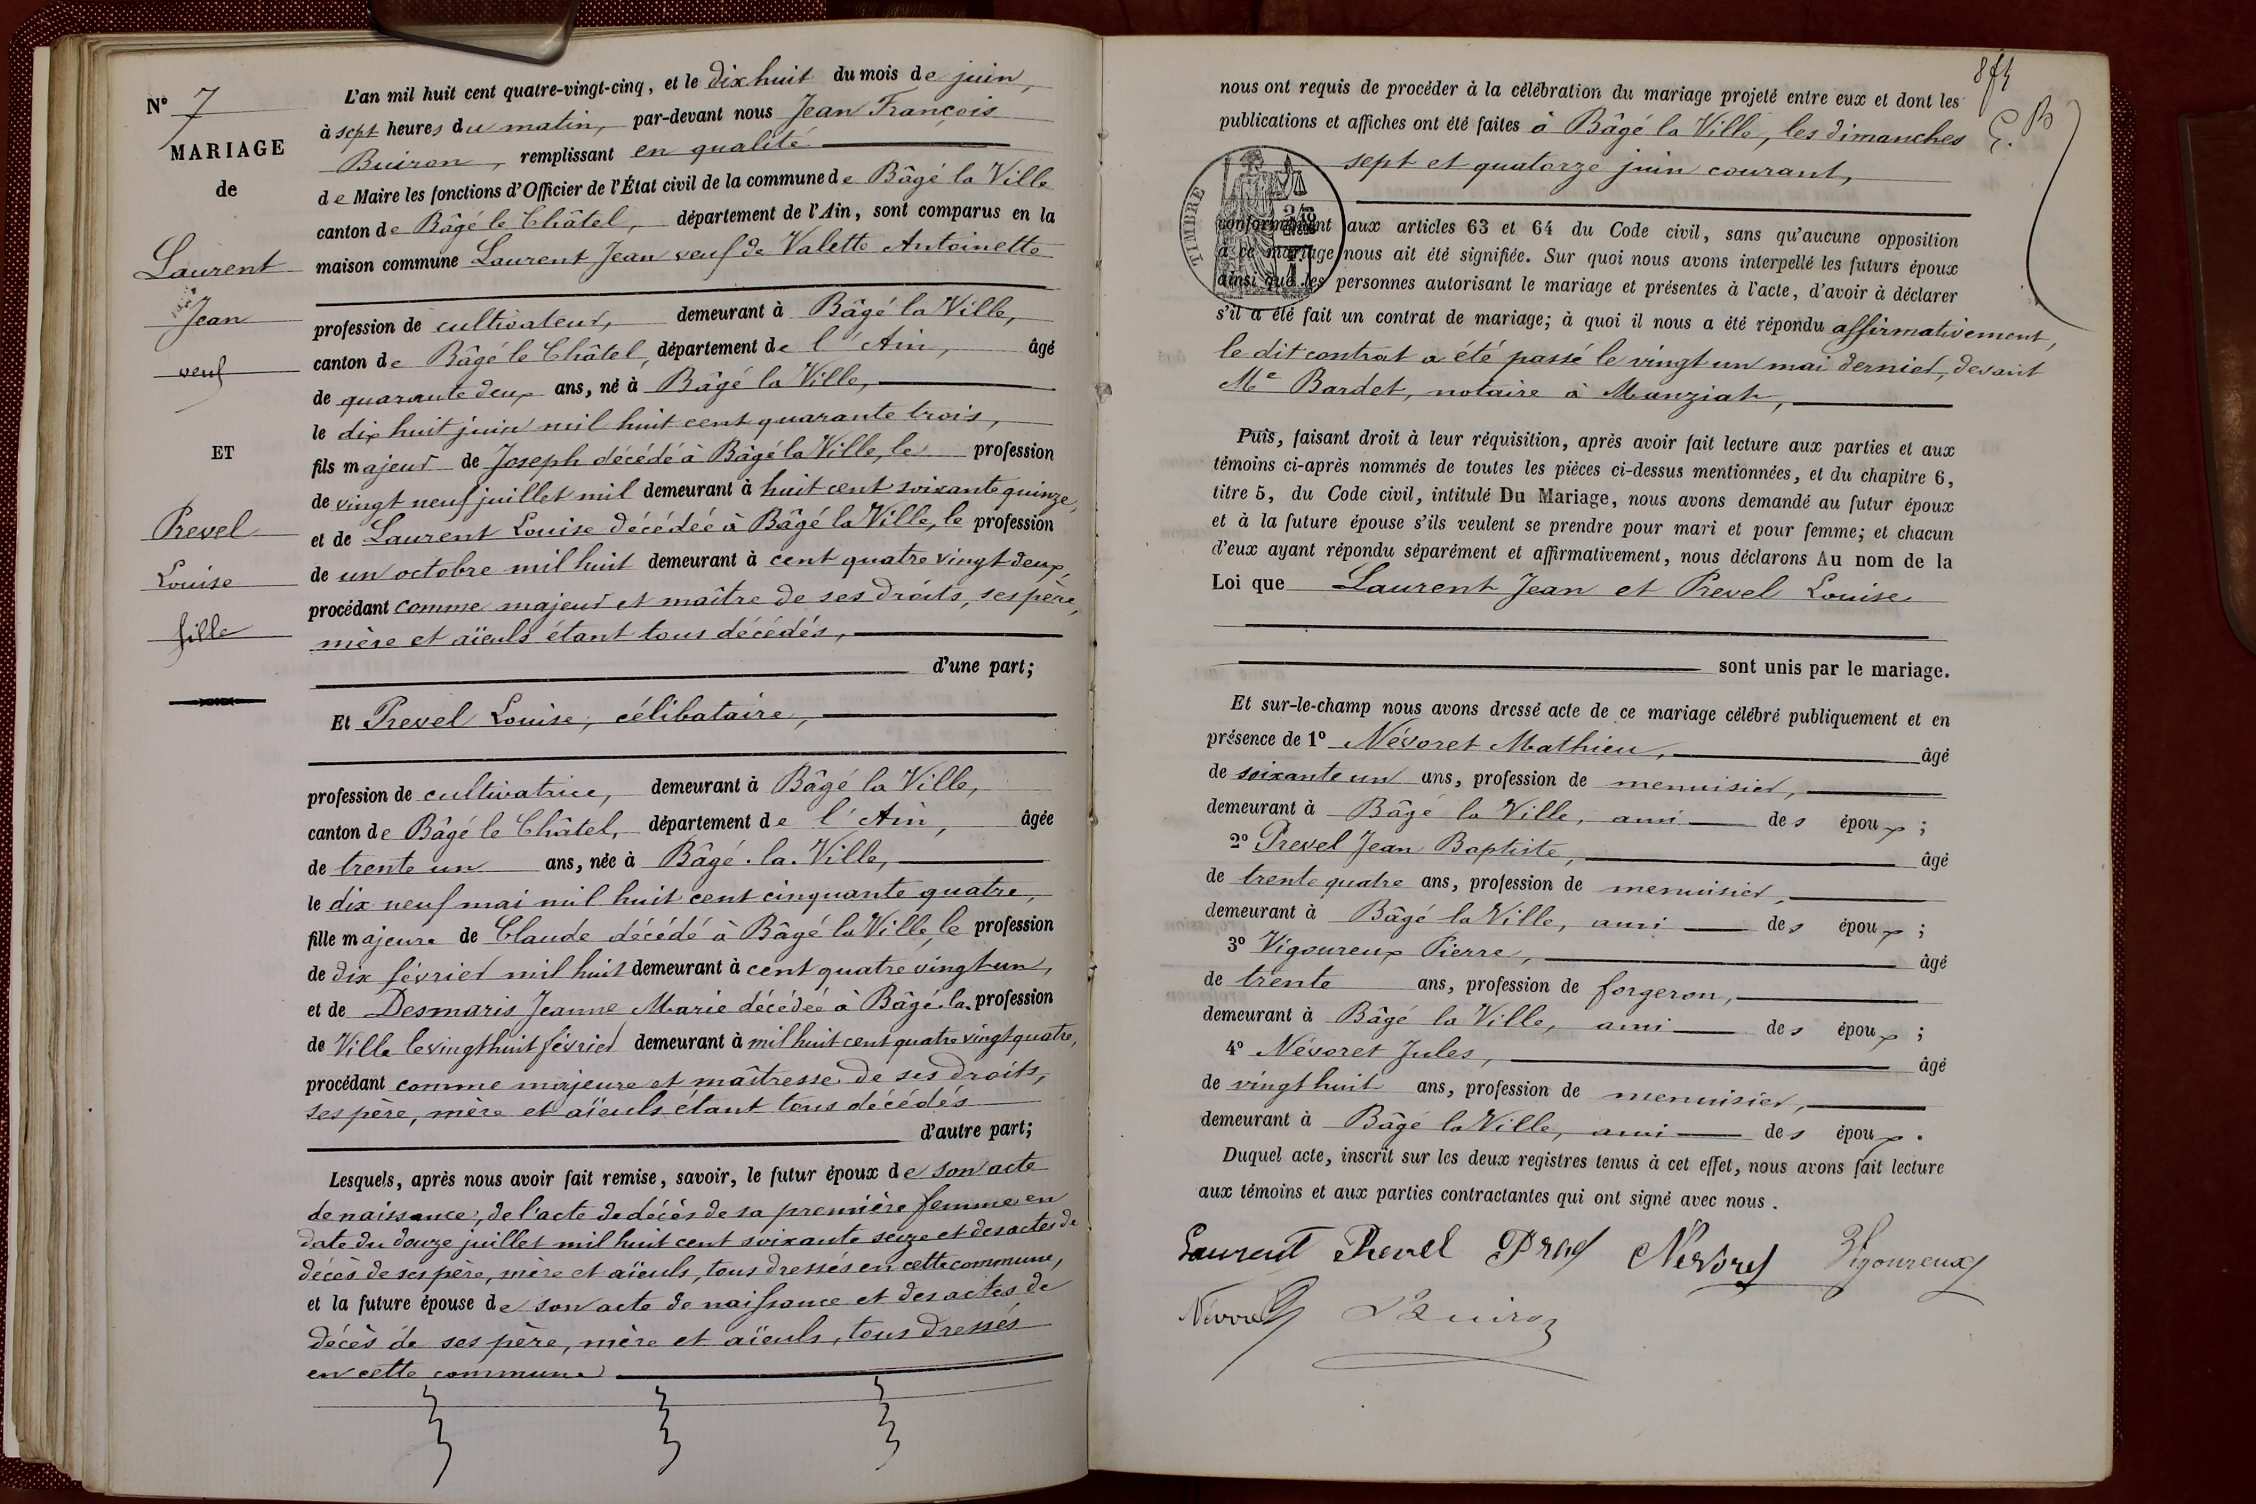 N° 7
MARIAGE
de
Laurent
Jean
veuf
ET
Prevel
Louise
fille
L'an mil huit cent quatre-vingt-cinq, et le dix huit du mois de juin,
à sept heures du matin, par-devant nous Jean François
Buiron, remplissant en qualité
de Maire les fonctions d'Officier de l'État civil de la commune de Bâgé la Ville
canton de Bâgé le Châtel, département de l'Ain, sont comparus en la
maison commune Laurent Jean veuf de Valette Antoinette
profession de cultivateur, demeurant à Bâgé la Ville,
canton de Bâgé le Châtel, département de l'Ain, âgé
de quarante deux ans, né à Bâgé la Ville,
le dix huit juin mil huit cent quarante trois,
fils majeur de Joseph décédé à Bâgé la Ville, le profession
de vingt neuf juillet mil demeurant à huit cent soixante quinze,
et de Laurent Louise décédée à Bâgé la Ville, le profession
de un octobre mil huit demeurant à cent quatre vingt deux,
procédant comme majeur et maître de ses droits, ses père,
mère et aïeuls étant tous décédés,
d'une part;
Et Prevel Louise, célibataire,
profession de cultivatrice, demeurant à Bâgé la Ville,
canton de Bâgé le Châtel, département de l'Ain, âgée
de trente un ans, née à Bâgé la Ville,
le dix neuf mai mil huit cent cinquante quatre,
fille majeure de Claude décédé à Bâgé la Ville, le profession
de dix février mil huit demeurant à cent quatre vingt un,
et de Desmaris Jeanne Marie décédée à Bâgé la profession
de Ville le vingt huit février demeurant à mil huit cent quatre vingt quatre,
procédant comme majeure et maîtresse de ses droits,
ses père, mère et aïeuls étant tous décédés
d'autre part;
Lesquels, après nous avoir fait remise, savoir, le futur époux de son acte
de naissance, de l'acte de décès de sa première femme en
date du douze juillet mil huit cent soixante seize et des actes de
décès de ses père, mère et aïeuls, tous dressés en cette commune,
et la future épouse de son acte de naissance et des actes de
décès de ses père, mère et aïeuls, tous dressés
en cette commune
nous ont requis de procéder à la célébration du mariage projeté entre eux et dont les
publications et affiches ont été faites à Bâgé la Ville, les dimanches
sept et quatorze juin courant,
TIMBRE
conformément aux articles 63 et 64 du Code civil, sans qu'aucune opposition
à ce mariage nous ait été signifiée. Sur quoi nous avons interpellé les futurs époux
ainsi que les personnes autorisant le mariage et présentes à l'acte, d'avoir à déclarer
s'il a été fait un contrat de mariage; à quoi il nous a été répondu affirmativement,
le dit contrat a été passé le vingt un mai dernier, devant
Me Bardet, notaire à Manziat,
Puis, faisant droit à leur réquisition, après avoir fait lecture aux parties et aux
témoins ci-après nommés de toutes les pièces ci-dessus mentionnées, et du chapitre 6,
titre 5, du Code civil, intitulé Du Mariage, nous avons demandé au futur époux
et à la future épouse s'ils veulent se prendre pour mari et pour femme; et chacun
d'eux ayant répondu séparément et affirmativement, nous déclarons Au nom de la
Loi que Laurent Jean et Prevel Louise
sont unis par le mariage.
Et sur-le-champ nous avons dressé acte de ce mariage célébré publiquement et en
présence de 1° Névoret Mathieu, âgé
de soixante un ans, profession de menuisier,
demeurant à Bâgé la Ville, ami des époux;
2° Prevel Jean Baptiste, âgé
de trente quatre ans, profession de menuisier,
demeurant à Bâgé la Ville, ami des époux;
3° Vigoureux Pierre, âgé
de trente ans, profession de forgeron,
demeurant à Bâgé la Ville, ami des époux;
4° Névoret Jules, âgé
de vingt huit ans, profession de menuisier,
demeurant à Bâgé la Ville, ami des époux.
Duquel acte, inscrit sur les deux registres tenus à cet effet, nous avons fait lecture
aux témoins et aux parties contractantes qui ont signé avec nous.
Laurent Prevel Névoret Vigoureux
Buiron